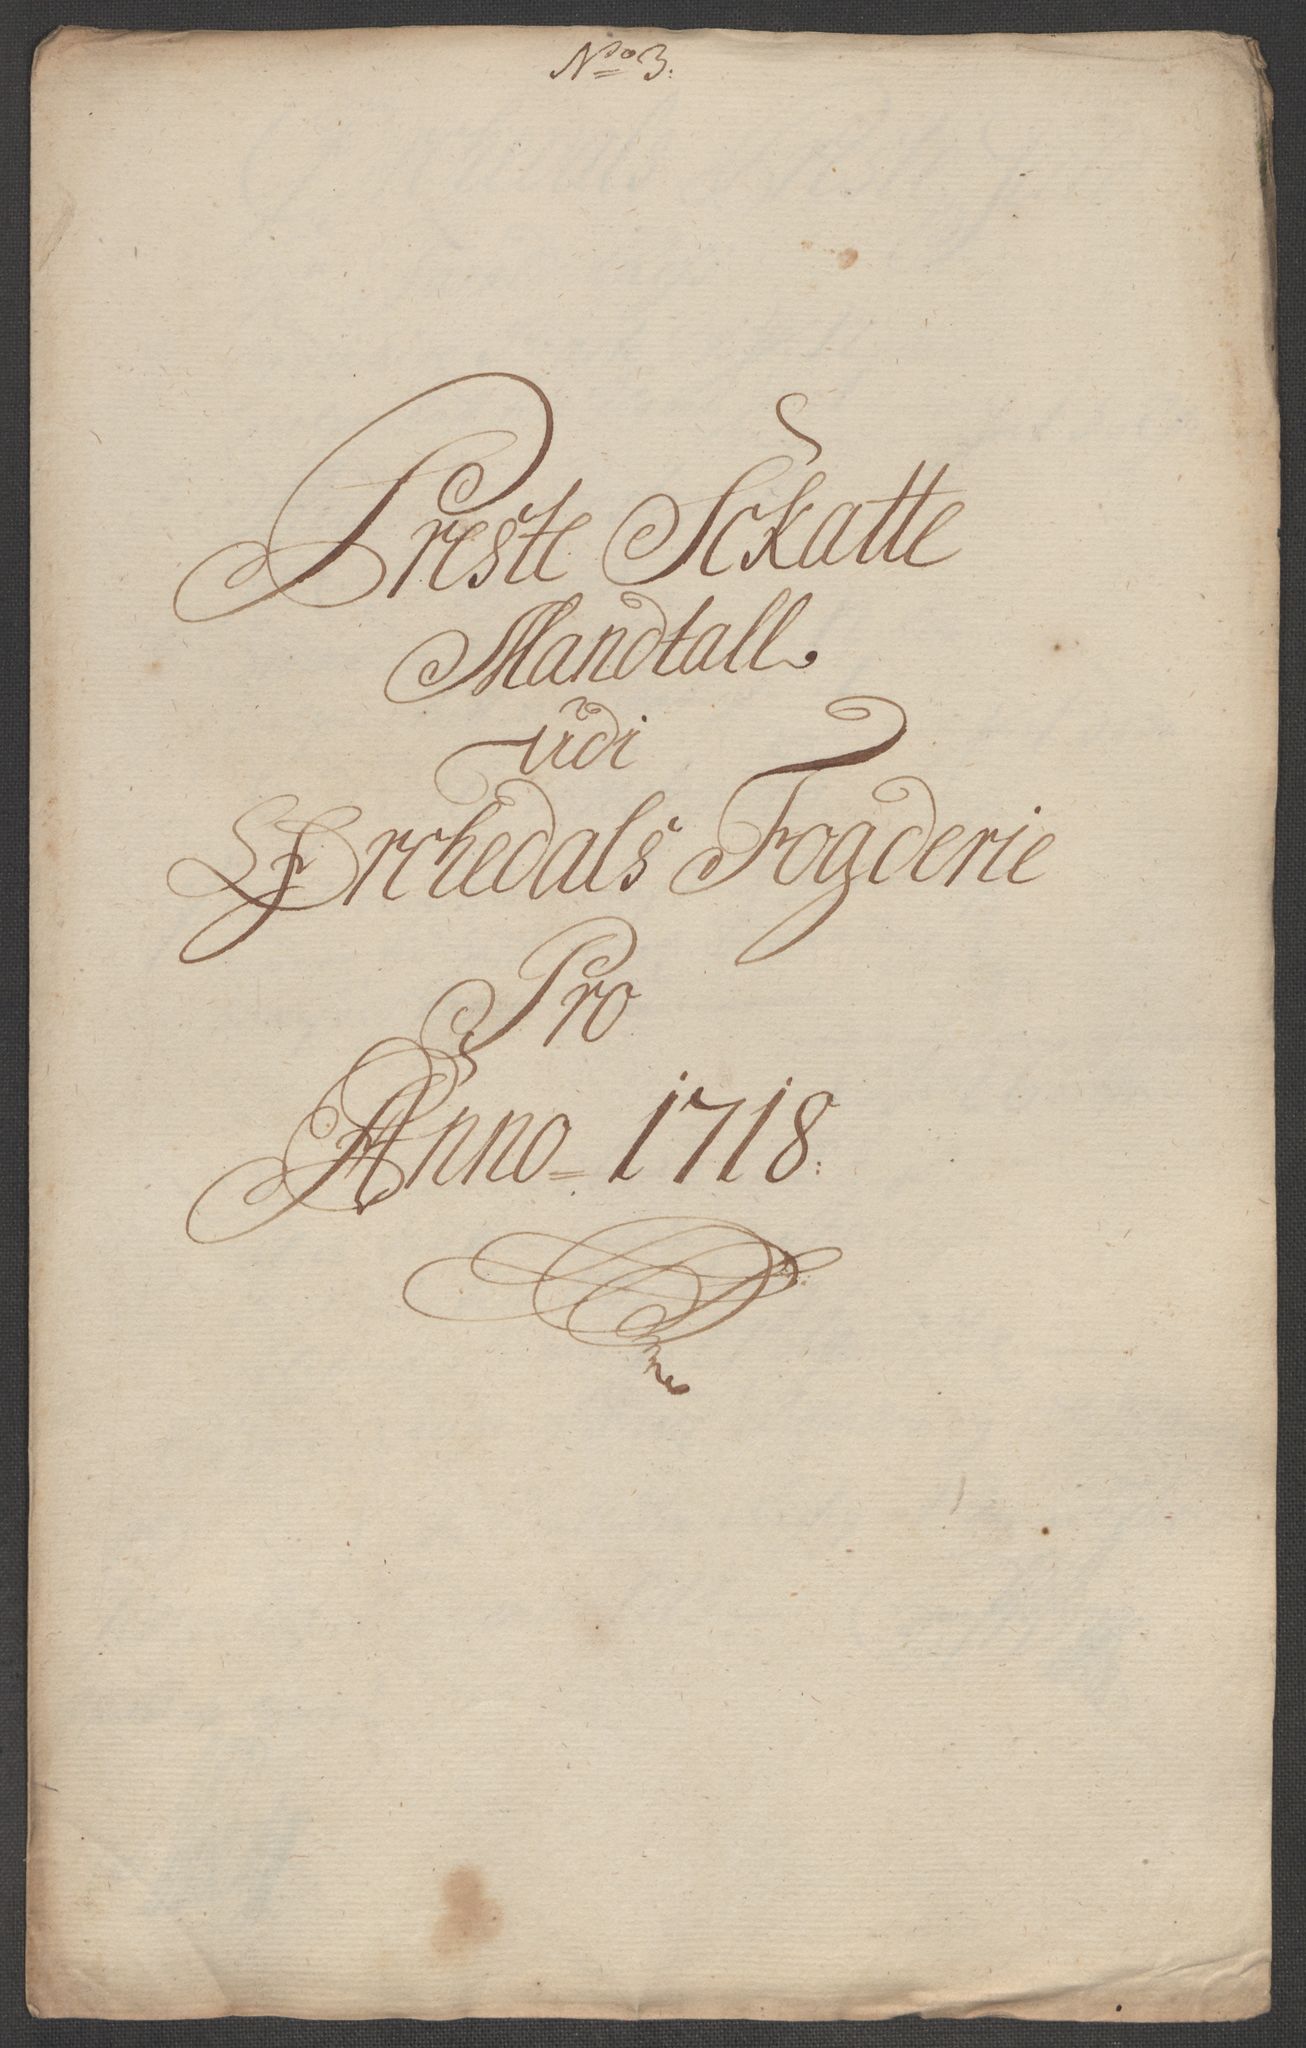 No 3.
Preste Sckatte
Mandtall
udi
Orchedals Fogderie
Pro
Anno 1718.